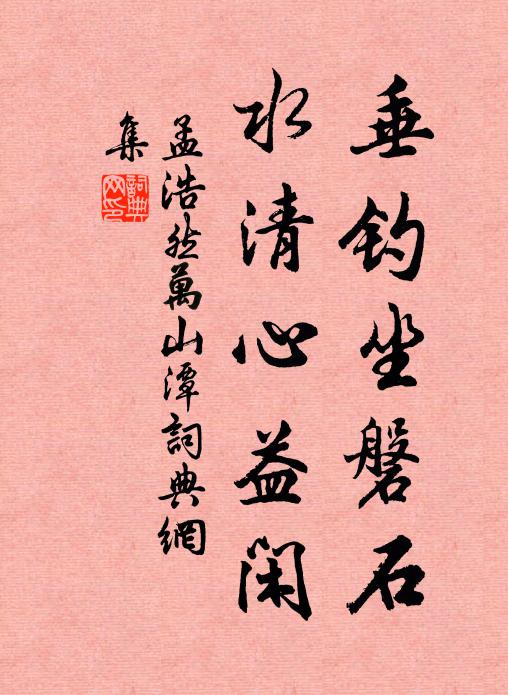 垂钓坐磐石
水清心益闲
孟浩然萬山潭詞典網
集
詞典网印